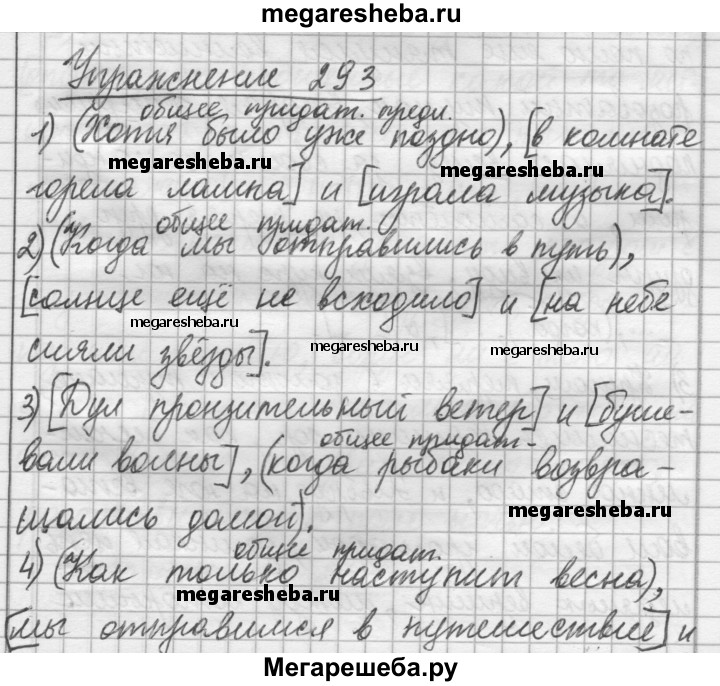 megaresheba.ru
Упражнение 293
общее придат. предл.
1) (Хотя было уже поздно), [в комнате
megaresheba.ru megaresheba.ru
горела лампа] и [играла музыка].
общее придат.
2) (Когда мы отправились в путь),
[солнце ещё не всходило] и [на небе
megaresheba.ru megaresheba.ru megaresheba.ru
сияли звёзды].
3) [Дул пронзительный ветер] и [буше-
общее придат-
вали волны], (когда рыбаки возвра-
щались домой).
megaresheba.ru
общее придат.
4) (Как только наступит весна),
megaresheba.ru
[мы отправимся в путешествие] и
Мегарешеба.ру